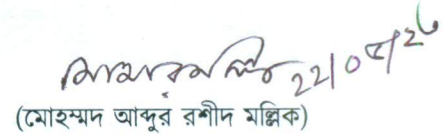 ২২/০৫/২৬
(মোহম্মদ আব্দুর রশীদ মল্লিক)